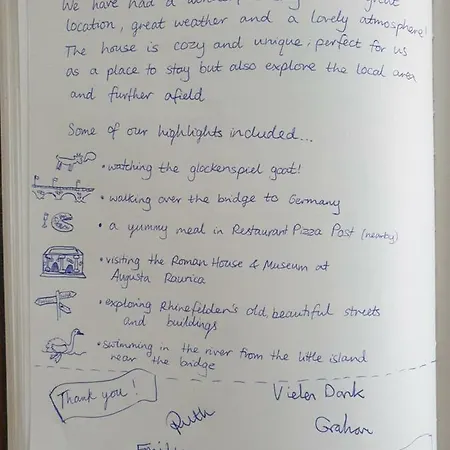 We have had a
great
location, great weather and a lovely atmosphere!
The house is cozy and unique, perfect for us
as a place to stay but also explore the local area
and further afield
Some of our highlights included...
• watching the glockenspiel goat!
• walking over the bridge to Germany
• a yummy meal in Restaurant Pizza Post (nearby)
• visiting the Roman House & Museum at
Augusta Raurica
• exploring Rhinefelden's old, beautiful streets
and buildings
• swimming in the river from the little island
near the bridge
Thank you!
Vielen Dank
Ruth
Graham